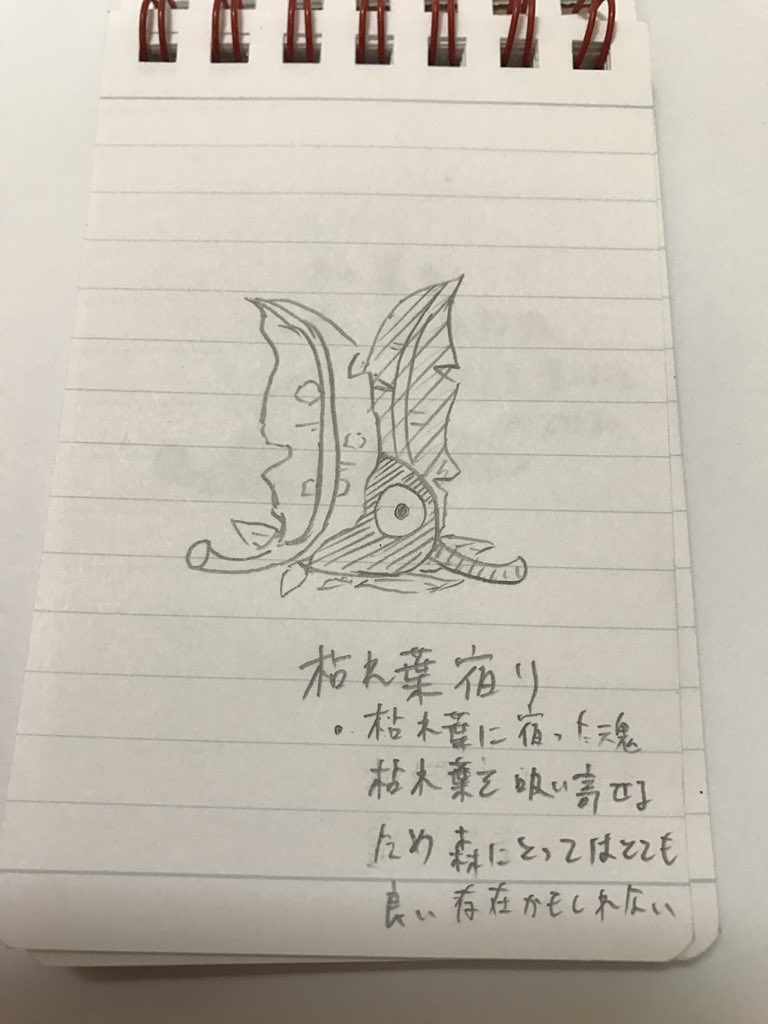 枯れ葉宿り
・枯木葉に宿った魂
枯木葉を吸い寄せる
ため森にとってはとても
良い存在かもしれない